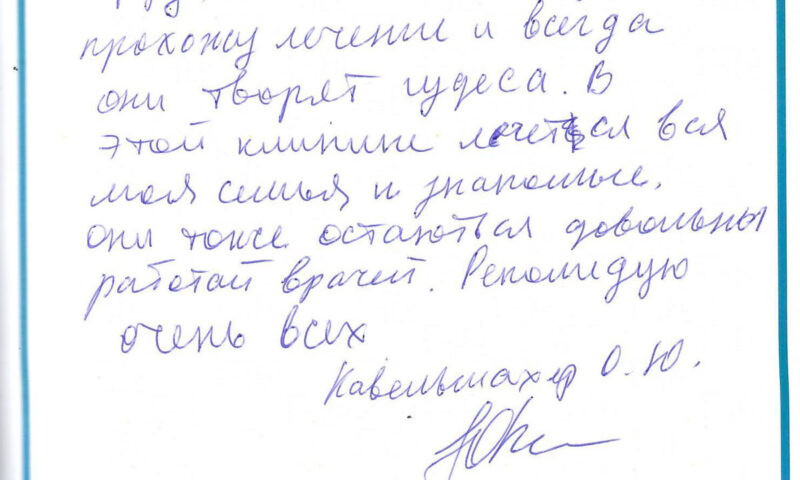 прохожу лечение и всегда
они творят чудеса. В
этой клинике лечется вся
моя семья и знакомые,
они тоже остаются довольны
работай врачей. Рекомидую
очень всех
Кавельмахер О.Ю.